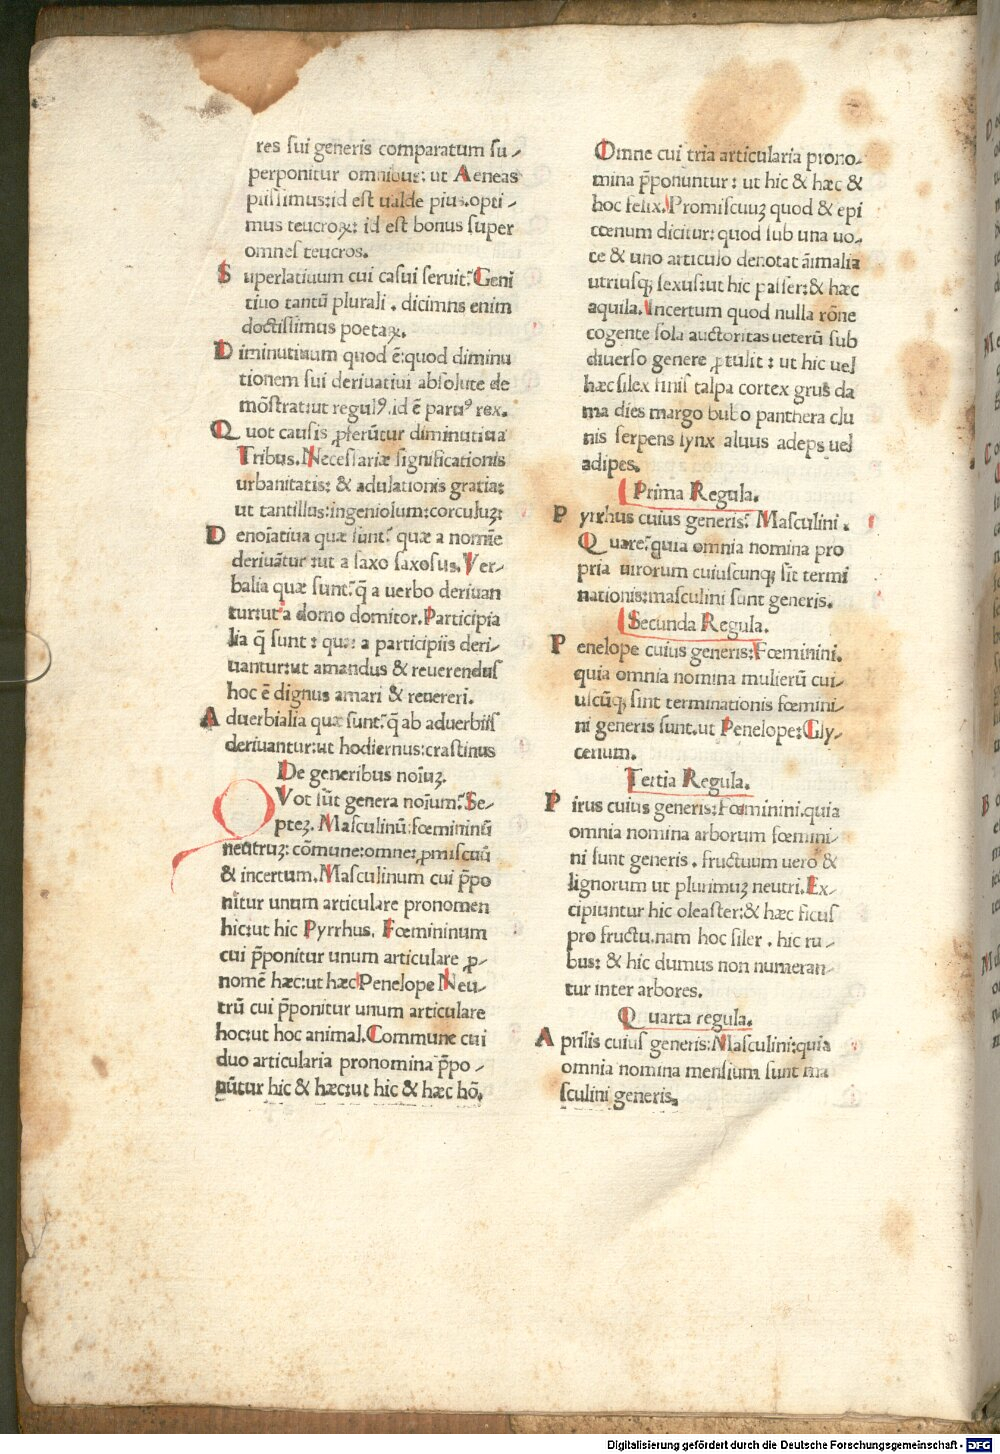 res sui generis comparatum su-
perponitur omnibus: ut Aeneas
piissimus: id est ualde pius. opti-
mus teucroꝝ: id est bonus super
omnes teucros.
Superlatiuum cui casui seruit: Geni
tiuo tantū plurali. dicimns enim
doctissimus poetaꝝ.
Diminutiuum quod ē: quod diminu
tionem sui deriuatiui absolute de
mōstrat: ut regulꝰ. id ē paruꝰ rex.
Quot causis ꝓferūtur diminutiua
Tribus. Necessariæ significationis
urbanitatis: & adulationis gratia:
ut tantillus: ingeniolum: corculuꝫ:
Denoīatiua quæ sunt: quæ a nomīe
deriuātur: ut a saxo saxosus. Ver-
balia quæ sunt: q̄ a uerbo deriuan
tur: ut a domo domitor. Participia
lia q̄ sunt: quæ a participiis deri-
uantur: ut amandus & reuerendus
hoc ē dignus amari & reuereri.
Aduerbialia quæ sunt: q̄ ab aduerbiis
deriuantur: ut hodiernus: crastinus
De generibus noīuꝫ.
QVot sūt genera noīum: Se-
pteꝫ. Masculinū: fœmininū
neutruꝫ: cōmune: omne: ꝓmiscuū
& incertum. Masculinum cui p̄po
nitur unum articulare pronomen
hic: ut hic Pyrrhus. Fœmininum
cui p̄ponitur unum articulare ꝓ-
nomē hæc: ut hæc Penelope Neu-
trū cui p̄ponitur unum articulare
hoc: ut hoc animal. Commune cui
duo articularia pronomina p̄po-
nūtur hic & hæc: ut hic & hæc hō.
Omne cui tria articularia prono-
mina p̄ponuntur: ut hic & hæc &
hoc felix. Promiscuuꝫ quod & epi
cœnum dicitur: quod sub una uo-
ce & uno articulo denotat āimalia
utriusqꝫ sexus: ut hic passer: & hæc
aquila. Incertum quod nulla rōne
cogente sola auctoritas ueterū sub
diuerso genere ꝓtulit: ut hic uel
hæc silex finis talpa cortex grus da
ma dies margo bubo panthera clu
nis serpens lynx aluus adeps uel
adipes.
Prima Regula.
Pyrrhus cuius generis: Masculini.
Quare: quia omnia nomina pro
pria uirorum cuiuscunqꝫ sīt termi
nationis: masculini sunt generis.
Secunda Regula.
Penelope cuius generis: Fœminini.
quia omnia nomina mulierū cui-
uscūqꝫ sint terminationis fœmini-
ni generis sunt. ut Penelope: Gly-
cerium.
Tertia Regula.
Pirus cuius generis: Fœminini. quia
omnia nomina arborum fœmini-
ni sunt generis. fructuum uero &
lignorum ut plurimuꝫ neutri. Ex-
cipiuntur hic oleaster: & hæc ficus
pro fructu. nam hoc siler. hic ru-
bus: & hic dumus non numeran-
tur inter arbores.
Quarta regula.
Aprilis cuius generis: Masculini: quia
omnia nomina mensium sunt ma
sculini generis.
Digitalisierung gefördert durch die Deutsche Forschungsgemeinschaft - DFG